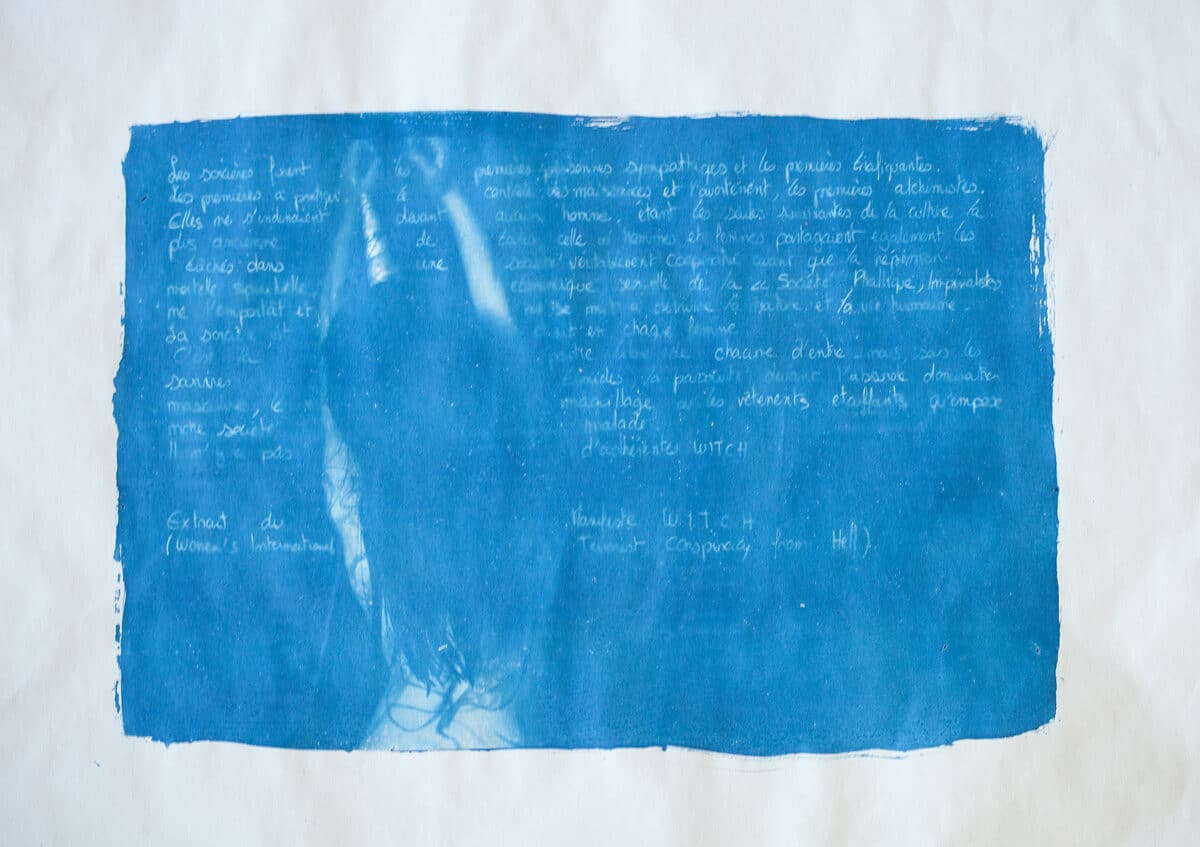 Les sorcières furent les premières personnes sympathiques et les premières trafiquantes.
Les premières à pratiquer le contrôle des naissances et l'avortement, les premières alchimistes.
Elles ne s'inclinaient devant aucun homme, étant les seules survivantes de la culture la
plus ancienne de celle où hommes et femmes partageaient également les
cachés dans une société véritablement coopérative avant que la répression
mortelle spirituelle économique sexuelle de la Société Phallique, Impérialiste
ne l'emportât et ne se mit à détruire la nature et la vie humaine.
La sorcière vit et chaque femme
C'est la chacune d'entre sous les
sourires timides devant l'absurde domination
masculine, le maquillage ou les vêtements étouffants qu'impose
notre société malade
Il n'y a pas d'adhérentes WITCH
Extrait du Manifeste W.I.T.C.H
(Women's International Terrorist Conspiracy from Hell).